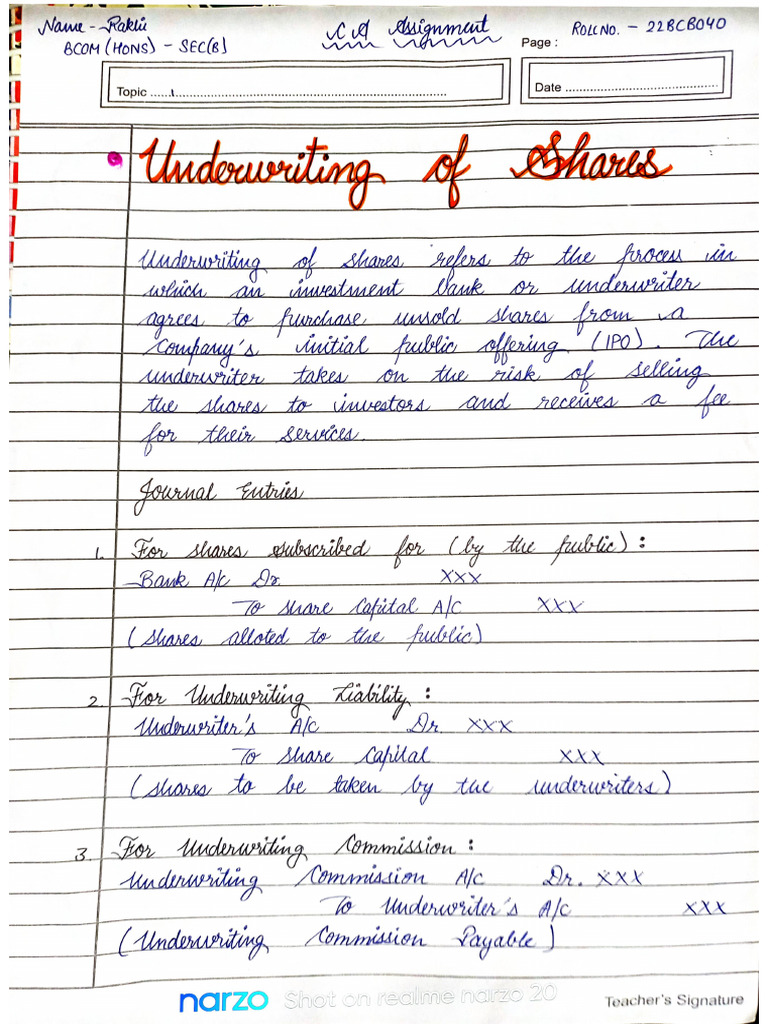 Name - Rakhi
CA Assignment
ROLL NO. - 22BCB040
BCOM (HONS) - SEC(B)
Page :
Topic
Date
Underwriting of Shares
Underwriting of shares refers to the process in
which an investment bank or underwriter
agrees to purchase unsold shares from a
company's initial public offering (IPO). The
underwriter takes on the risk of selling
the shares to investors and receives a fee
for their services.
Journal Entries
1. For shares subscribed for (by the public) :
Bank A/c Dr. XXX
To share capital A/C XXX
(shares alloted to the public)
2. For Underwriting Liability :
Underwriter's A/C Dr. XXX
To share capital XXX
(shares to be taken by the underwriters)
3. For Underwriting Commission :
Underwriting Commission A/C Dr. XXX
To Underwriter's A/C XXX
(Underwriting Commission Payable)
narzo Shot on realme narzo 20
Teacher's Signature